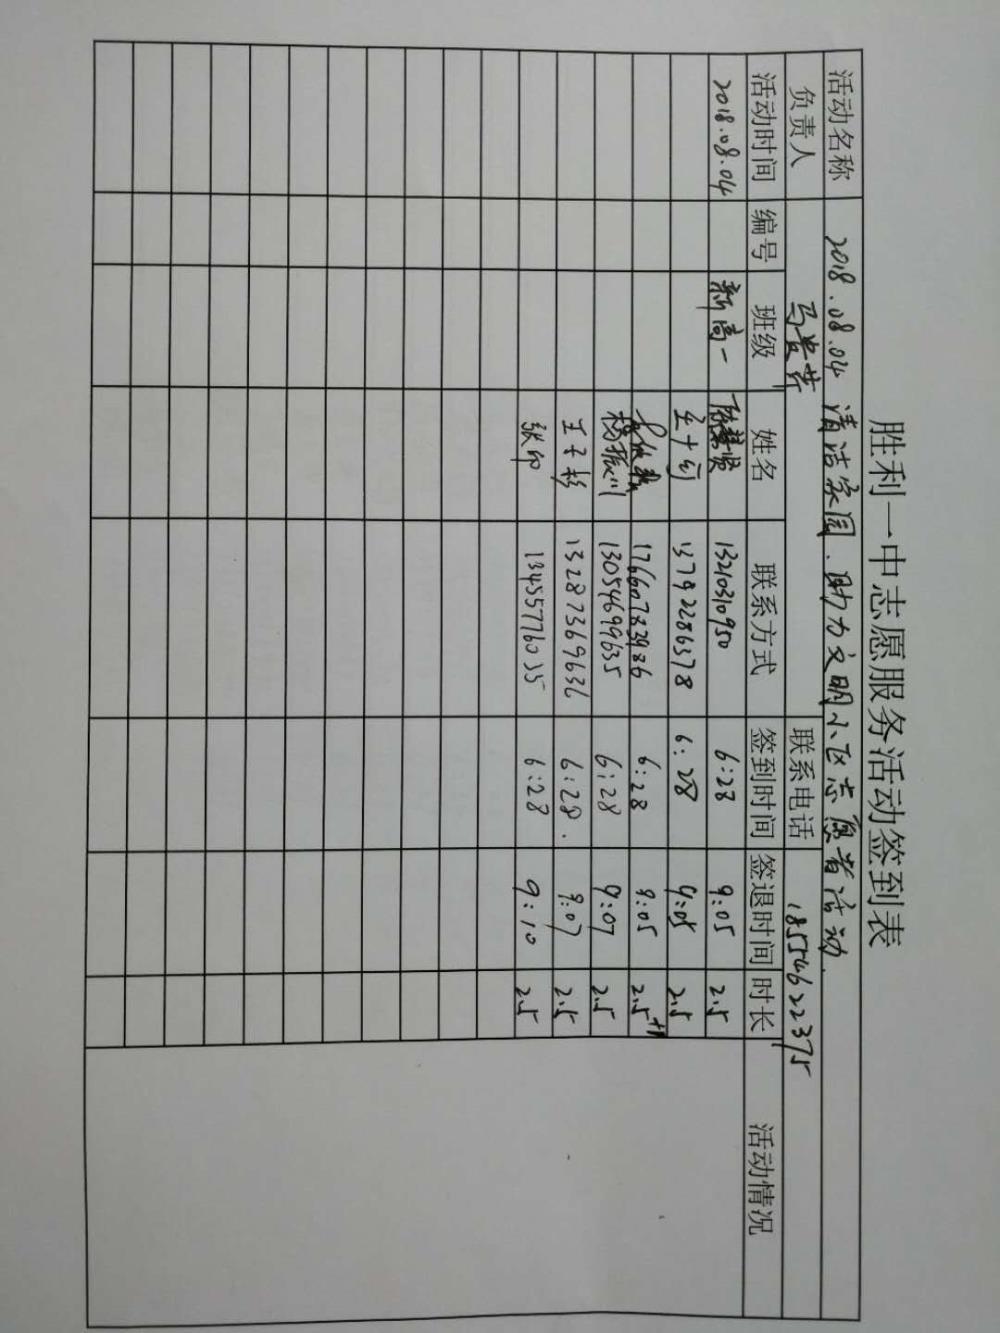 胜利一中志愿服务活动签到表
活动名称 2018.08.04 清洁家园.助力文明小区志愿者活动.
负责人 联系电话 18554622375
活动时间 编号 班级 姓名 联系方式 签到时间 签退时间 时长 活动情况
2018.08.04 新高一 13210310950 6:28 9:05 2.5
13792286378 6:28 9:05 2.5
17660783986 6:28 9:05 2.5+1
杨振川 13054699635 6:28 9:07 2.5
王子杉 13287369636 6:28. 9:07 2.5
张帅 13455776035 6:28 9:10 2.5